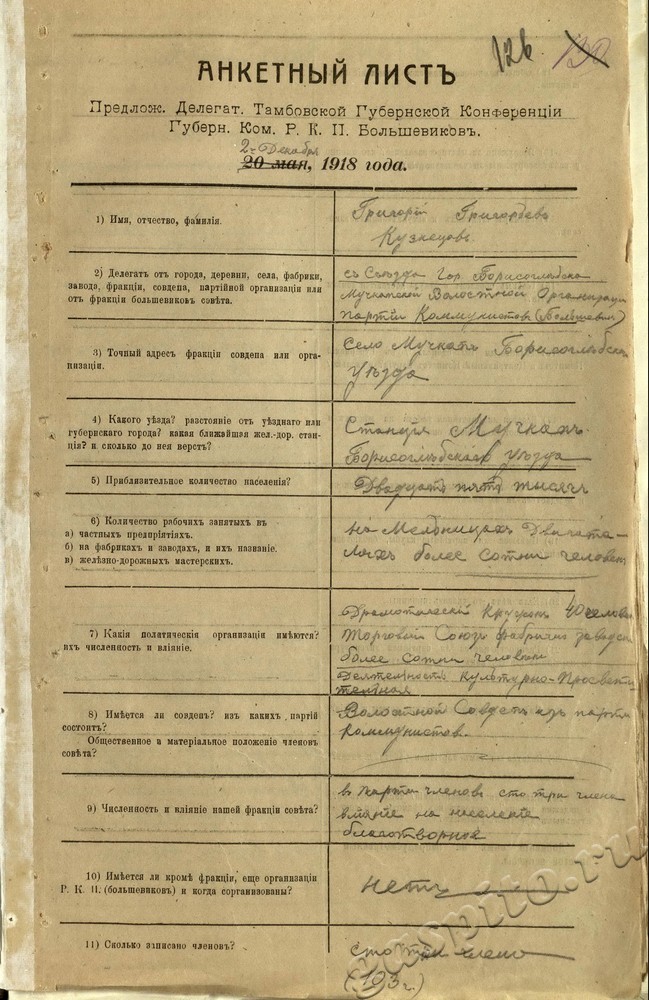 126 120
АНКЕТНЫЙ ЛИСТЪ
Предлож. Делегат. Тамбовской Губернской Конференціи
Губерн. Ком. Р. К. П. Большевиковъ.
2-Декабря
20 мая, 1918 года.
1) Имя, отчество, фамилія.
Григорій Григорьев
Кузнецовъ
2) Делегатъ отъ города, деревни, села, фабрики,
завода, фракціи, совдепа, партійной организаціи или
отъ фракціи большевиковъ совѣта.
съ Съѣзда Гор Борисоглѣбска
Мучкапской Волостной Организаци
партіи Коммунистов (Большевик)
3) Точный адресъ фракціи совдепа или орга-
низаціи.
Село Мучкапъ Борисоглѣбск
Уѣзда
4) Какого уѣзда? разстояніе отъ уѣзднаго или
губернскаго города? какая ближайшая жел.-дор. стан-
ція? и сколько до нея верстъ?
Станція Мучкапъ
Борисоглѣбскаго уѣзда
5) Приблизительное количество населенія?
Двадцать пять тысячъ
6) Количество рабочихъ занятыхъ въ
а) частныхъ предпріятіяхъ.
б) на фабрикахъ и заводахъ, и ихъ названіе.
в) желѣзно-дорожныхъ мастерскихъ.
на Мельницахъ Двигате-
ляхъ более сотни человек
7) Какія политическія организаціи имѣются?
ихъ численность и вліяніе.
Драмотический Кружокъ 40 человек
Торговый Союзъ фабрично заводск
более сотни человекъ
Деятельность культурно-Просвети
тельная
8) Имѣется ли совдепъ? изъ какихъ партій
состоитъ?
Общественное и матеріальное положеніе членовъ
совѣта?
Волостной Совдепъ изъ парти
коммунистов.
9) Численность и вліяніе нашей фракціи совѣта?
в парти членовъ сто три члена
влияние на население
благотворное
10) Имѣется ли кромѣ фракціи, еще организаціи
Р. К. П. (большевиковъ) и когда сорганизованы?
нетъ
11) Сколько записано членовъ?
сто три члено
(103 г.)